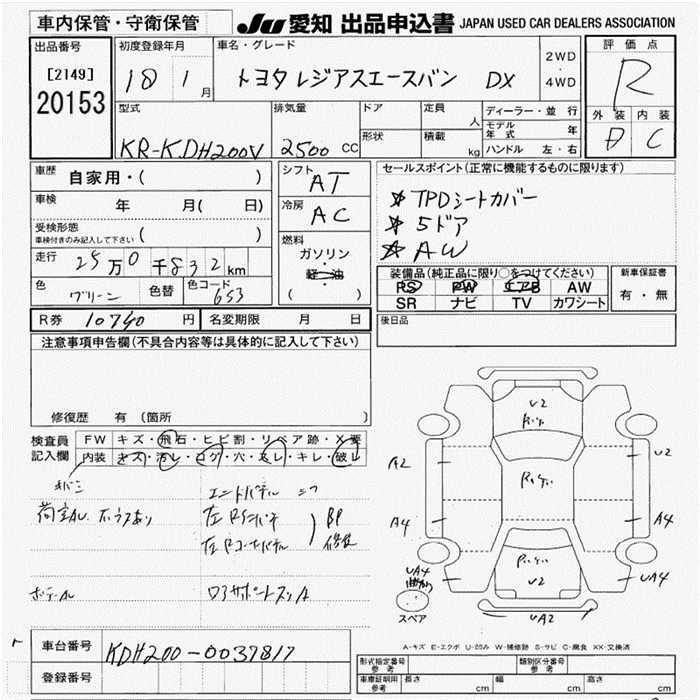 車内保管・守衛保管
JU 愛知 出品申込書 JAPAN USED CAR DEALERS ASSOCIATION
出品番号
[2149]
20153
初度登録年月
18 1 月
車名・グレード
トヨタ レジアスエースバン DX
2WD
4WD
評価点
R
外装 内装
D C
型式
KR-KDH200V
排気量
2500 CC
ドア
形状
定員
人
積載
kg
ディーラー・並行
モデル年式 年
ハンドル 左・右
車歴 自家用・( )
車検 年 月( 日)
受検形態
車検付きのみ記入して下さい ( )
走行 25万0千832km
色 グリーン 色替 色コード 653
シフト AT
冷房 AC
燃料
ガソリン
軽油
( )
セールスポイント(正常に機能するものに限ります)
☆ TPDシートカバー
☆ 5ドア
☆ AW
装備品(純正品に限り○をつけてください)
PS PW エアB AW
SR ナビ TV カワシート
新車保証書
有・無
R券 10740 円 名変期限 月 日
後日品
注意事項申告欄(不具合内容等は具体的に記入して下さい)
修復歴 有(箇所 )
検査員記入欄
FW キズ・飛石・ヒビ割・リペア跡・X要
内装 キズ・汚レ・コゲ・穴・スレ・キレ・破レ
左
左
修復
V2
A2
V2
A4
A4
UA4
曲がり
V2
UA4
スペア
UA2
A-キズ E-エクボ U-凹み W-補修跡 S-サビ C-腐食 XX-交換済
車台番号 KDH200-0037817
登録番号
形式指定番号 参考
類別区分番号 参考
車庫証明用 参考 長さ cm 幅 cm 高さ cm